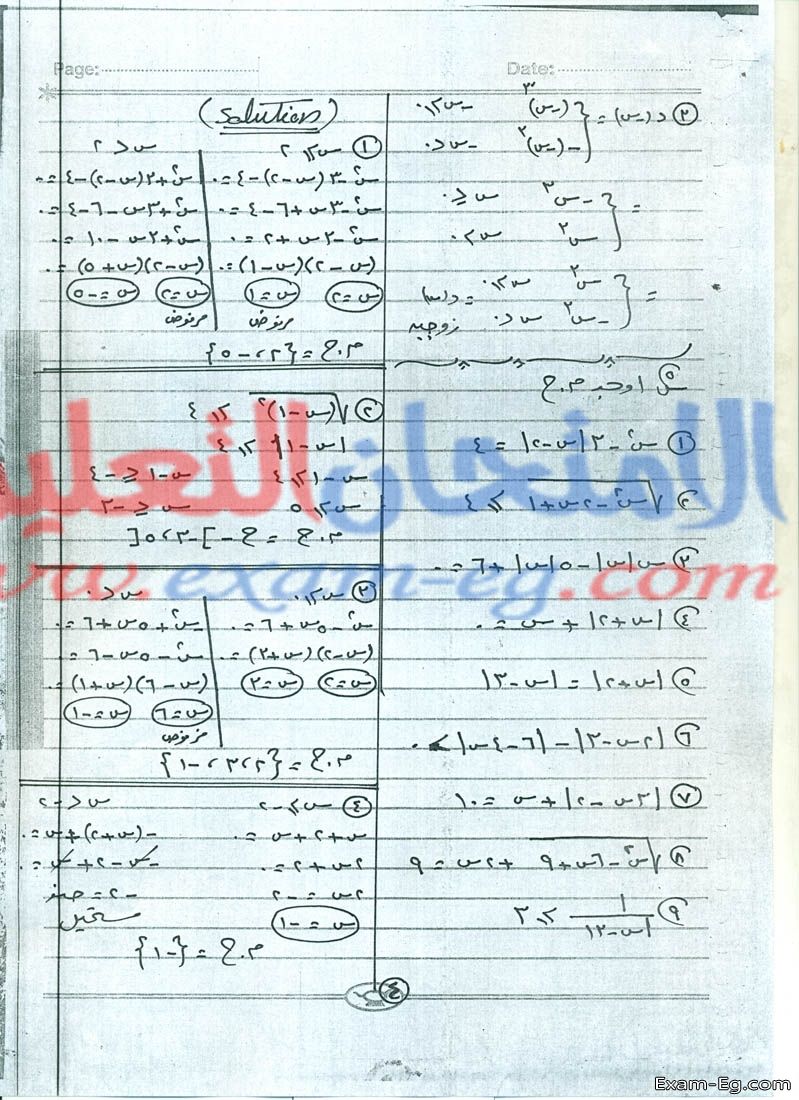 Page:
Date:
② د(س) = { (-س)³ -س ≥ ٠
-(-س)³ -س < ٠
= { -س³ س ≤ ٠
س³ س > ٠
= { س³ س ≥ ٠ = د(س)
-س³ س < ٠ زوجية
س٥ أوجد م.ح
① س² - ٣|س-٢| = ٤
② √(س² - ٢س + ١) ≥ ٤
③ س|س| - ٥|س| + ٦ = ٠
④ |س+٢| + س = ٠
⑤ |س+٢| = |س-٣|
⑥ |٢س-٣| - |٦-٤س| < ٠
⑦ |٣س-٢| + س = ١٠
⑧ √(س² - ٦س + ٩) + ٢س = ٩
⑨ ١ / |س-٢| ≥ ٣
(Solution)
① س ≥ ٢ س < ٢
س² - ٣(س-٢) - ٤ = ٠ س² + ٣(س-٢) - ٤ = ٠
س² - ٣س + ٦ - ٤ = ٠ س² + ٣س - ٦ - ٤ = ٠
س² - ٣س + ٢ = ٠ س² + ٣س - ١٠ = ٠
(س-٢)(س-١) = ٠ (س-٢)(س+٥) = ٠
س = ٢ س = ١ س = ٢ س = -٥
مرفوض مرفوض
م.ح = {٢، -٥}
② √(س-١)² ≥ ٤
|س-١| ≥ ٤
س-١ ≥ ٤ س-١ ≤ -٤
س ≥ ٥ س ≤ -٣
م.ح = ح - ]-٣، ٥[
③ س ≥ ٠ س < ٠
س² - ٥س + ٦ = ٠ -س² + ٥س + ٦ = ٠
(س-٢)(س+٣) = ٠ س² - ٥س - ٦ = ٠
س = ٢ س = ٣ (س-٦)(س+١) = ٠
س = ٦ س = -١
مرفوض
م.ح = {٢، ٣، -١}
④ س ≥ -٢ س < -٢
س + ٢ + س = ٠ -(س+٢) + س = ٠
٢س + ٢ = ٠ -س - ٢ + س = ٠
٢س = -٢ -٢ = صفر
س = -١ مستحيل
م.ح = {-١}
٤
الامتحان التعليمي
www.exam-eg.com
Exam-Eg.com